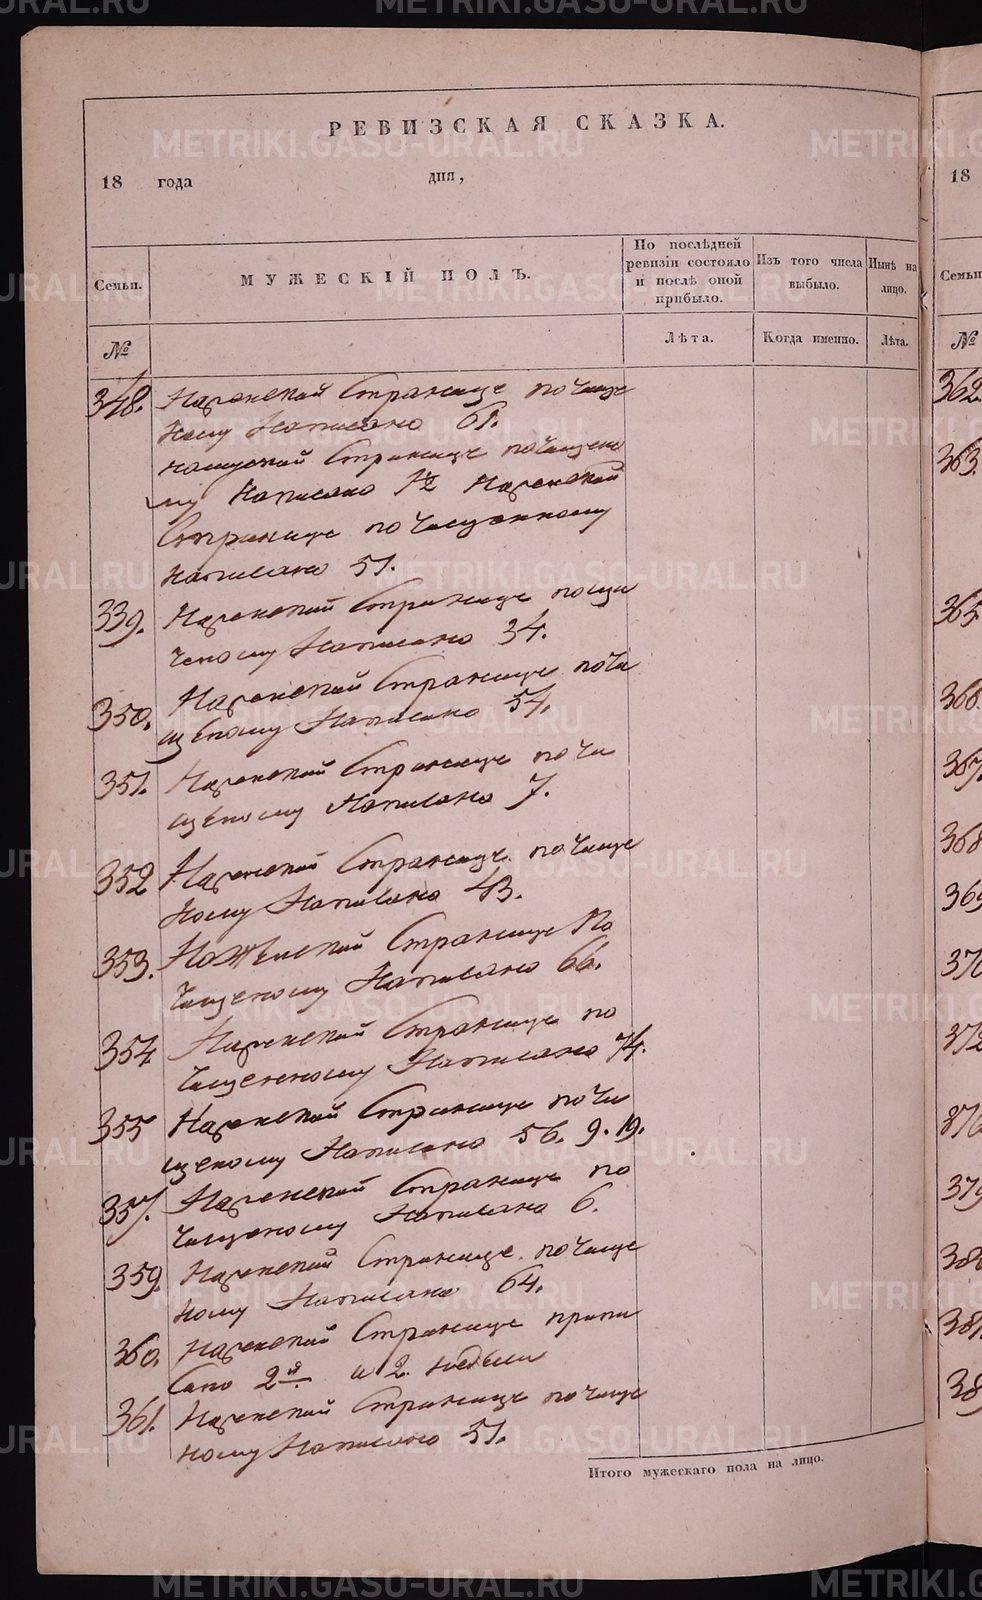 РЕВИЗСКАЯ СКАЗКА.
18 года дня,
Семьи.
МУЖЕСКІЙ ПОЛЪ.
По послѣдней ревизіи состояло и послѣ оной прибыло.
Изъ того числа выбыло.
Нынѣ на лицо.
№
Лѣта.
Когда именно.
Лѣта.
348. На женской Странице почище
ному Написано 61.
на мужской Странице почищено
му Написано 12 На женской
Странице по чищенному
написано 51.
339. На женской Странице почи
щеному Написано 34.
350. На женской Странице почи
щеному Написано 54.
351. На женской Странице почи
щеному Написано 7.
352 На женской Странице почище
ному Написано 43.
353. На Женской Странице По
чищеному Написано 66.
354 На женской Странице по
чищенному Написано 74.
355 На женской Странице почи
щеному Написано 56. 9. 19.
357. На женской Странице по
чищеному Написано 6.
359. На женской Странице почище
ному Написано 64.
360. На женской Странице припи
сано 2й и 2. недели
361. На женской Странице почище
ному Написано 51.
Итого мужескаго пола на лицо.
18
Семьи
№
362.
363.
365
366.
367.
368
369
370
372
376
379
380
381.
38
METRIKI.GASO-URAL.RU